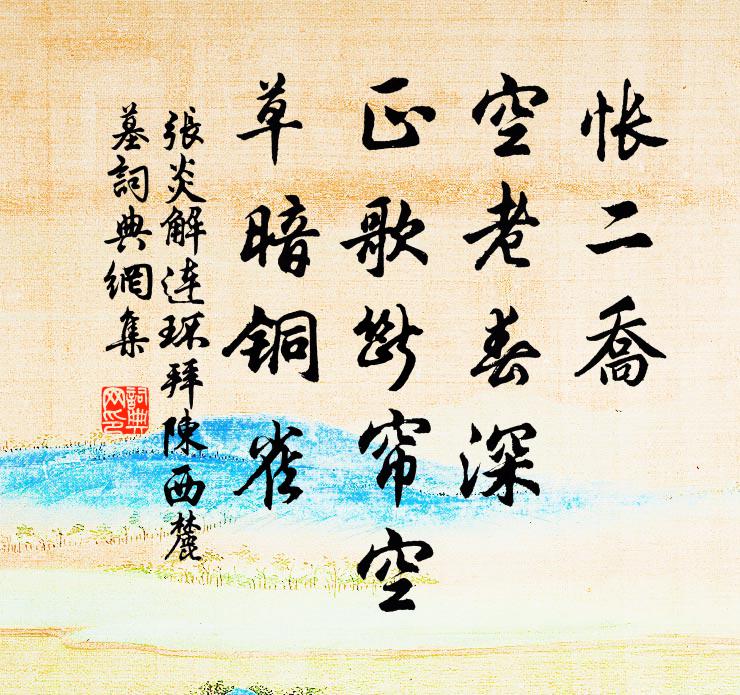 怅二喬
空老春深
正歌斷帘空
草暗銅雀
張炎解连环拜陳西麓
墓詞典網集
詞典网印